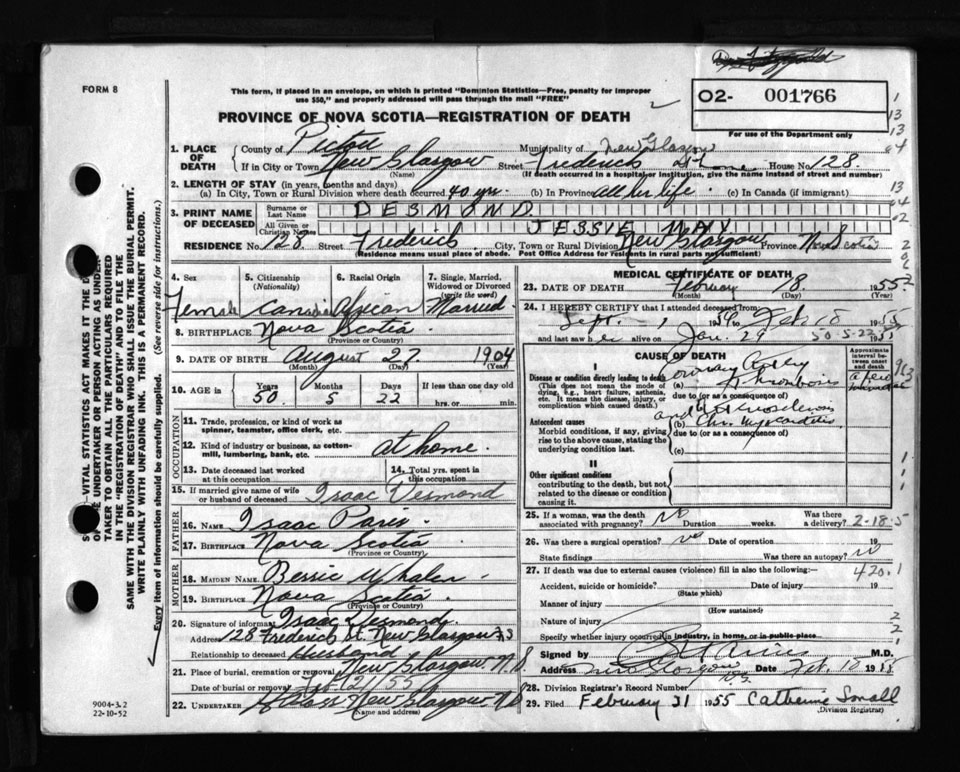 FORM 8
This form, if placed in an envelope, on which is printed "Dominion Statistics—Free, penalty for improper
use $50," and properly addressed will pass through the mail "FREE"
02- 001766
PROVINCE OF NOVA SCOTIA—REGISTRATION OF DEATH
For use of the Department only
1. PLACE OF DEATH
County of Pictou Municipality of New Glasgow
If in City or Town New Glasgow Street Frederick at home House No 128.
(Name) (If death occurred in a hospital or institution, give the name instead of street and number)
2. LENGTH OF STAY (in years, months and days)
(a) In City, Town or Rural Division where death occurred 40 yrs. (b) In Province all her life. (c) In Canada (if immigrant)
3. PRINT NAME OF DECEASED
Surname or Last Name DESMOND
All Given or Christian Names JESSIE MAY
RESIDENCE No 128. Street Frederick. City, Town or Rural Division New Glasgow Province Nova Scotia
(Residence means usual place of abode. Post Office Address for residents in rural parts not sufficient)
4. Sex 5. Citizenship (Nationality) 6. Racial Origin 7. Single, Married, Widowed or Divorced (write the word)
Female Canadian African Married.
8. BIRTHPLACE Nova Scotia
(Province or Country)
9. DATE OF BIRTH August 27 1904
(Month) (Day) (Year)
10. AGE in Years Months Days If less than one day old
50. 5 22 hrs. or min.
OCCUPATION
11. Trade, profession, or kind of work as
spinner, teamster, office clerk, etc.
12. Kind of industry or business, as cotton-
mill, lumbering, bank, etc. at home.
13. Date deceased last worked at this occupation
14. Total yrs. spent in this occupation
15. If married give name of wife
or husband of deceased Isaac Desmond
FATHER
16. NAME Isaac Paris.
17. BIRTHPLACE Nova Scotia
(Province or Country)
MOTHER
18. MAIDEN NAME Bessie Whalen.
19. BIRTHPLACE Nova Scotia
(Province or Country)
20. Signature of informant Isaac Desmond
Address 128 Frederick St. New Glasgow N.S
Relationship to deceased Husband
21. Place of burial, cremation or removal New Glasgow. N.S.
Date of burial or removal Feb 21/55
22. UNDERTAKER New Glasgow N.S
(Name and address)
MEDICAL CERTIFICATE OF DEATH
23. DATE OF DEATH February 18. 1955
(Month) (Day) (Year)
24. I HEREBY CERTIFY that I attended deceased from
Sept. - 1954 to Feb 18 1955
and last saw her alive on Jan. 29 50-5-22 1955
CAUSE OF DEATH
Approximate interval between onset and death
I
Disease or condition directly leading to death
(This does not mean the mode of dying, e.g., heart failure, asthenia, etc. It means the disease, injury, or complication which caused death.)
(a) Coronary Artery Thrombosis a few minutes
due to (or as a consequence of)
Antecedent causes
Morbid conditions, if any, giving rise to the above cause, stating the underlying condition last.
(b) Chr. Myocarditis
due to (or as a consequence of)
(c)
II
Other significant conditions
contributing to the death, but not related to the disease or condition causing it.
25. If a woman, was the death associated with pregnancy? No Duration weeks. Was there a delivery? 2-18-5
26. Was there a surgical operation? Date of operation 19
State findings Was there an autopsy? no
27. If death was due to external causes (violence) fill in also the following: 420.1
Accident, suicide or homicide? Date of injury 19
(State which)
Manner of injury
(How sustained)
Nature of injury
Specify whether injury occurred in industry, in home, or in public place
Signed by M.D.
Address New Glasgow N.S. Date Feb. 18 1955
28. Division Registrar's Record Number
29. Filed February 21 1955 Catherine Small
(Division Registrar)
9004-3.2
22-10-52
VITAL STATISTICS ACT MAKES IT THE
UNDERTAKER OR PERSON ACTING AS UNDER-
TAKER TO OBTAIN ALL THE PARTICULARS REQUIRED
IN THE "REGISTRATION OF DEATH" AND TO FILE THE
SAME WITH THE DIVISION REGISTRAR WHO SHALL ISSUE THE BURIAL PERMIT.
WRITE PLAINLY WITH UNFADING INK. THIS IS A PERMANENT RECORD.
Every item of information should be carefully supplied. (See reverse side for instructions.)